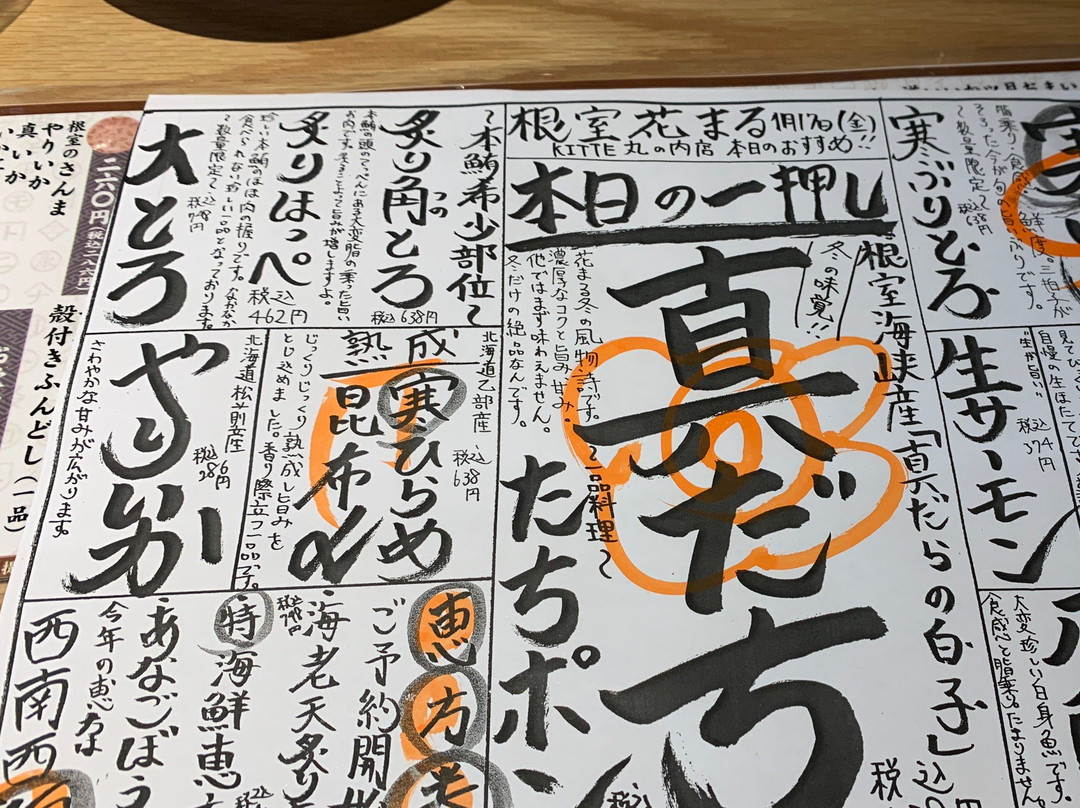 根室花まる 1月17日(金)
KITTE 丸の内店 本日のおすすめ!!
本日の一押し
冬の味覚!!
根室海峡産「真だらの白子」
税込
真だち
花まる冬の風物詩です。
濃厚なコクと旨み甘み
他ではまず味わえません。
冬だけの絶品なんです。
〜一品料理〜
たちポン
寒ぶりとろ
税込638円
生サーモン
税込374円
自慢の生ほたてです
"生が旨い"
大変珍しい白身魚です。
食感と脂乗り。たまりません
〜本鮪希少部位〜
炙り角とろ
つの
税込638円
本鮪の頭のてっぺんにある大変脂の乗った旨い
炙りほっぺ
税込462円
珍しい本鮪のほほ肉の握りです。なかなか
食べられない珍しい一品となっております。
〜数量限定〜
大とろ
税込748円
北海道乙部産
熟成
寒ひらめ
昆布〆
税込638円
じっくりじっくり熟成し旨みを
とじ込めました。香り際立つ一品です。
北海道松前産
やりいか
税込286円
さわやかな甘みが広がります。
恵方巻
ご予約開
海老天炙り
特海鮮恵
あなごぼう
今年の恵方は
西南西
根室のさんま
やりいか
真いか
二六〇円
(税込二八六円)
殻付きふんどし(一品)